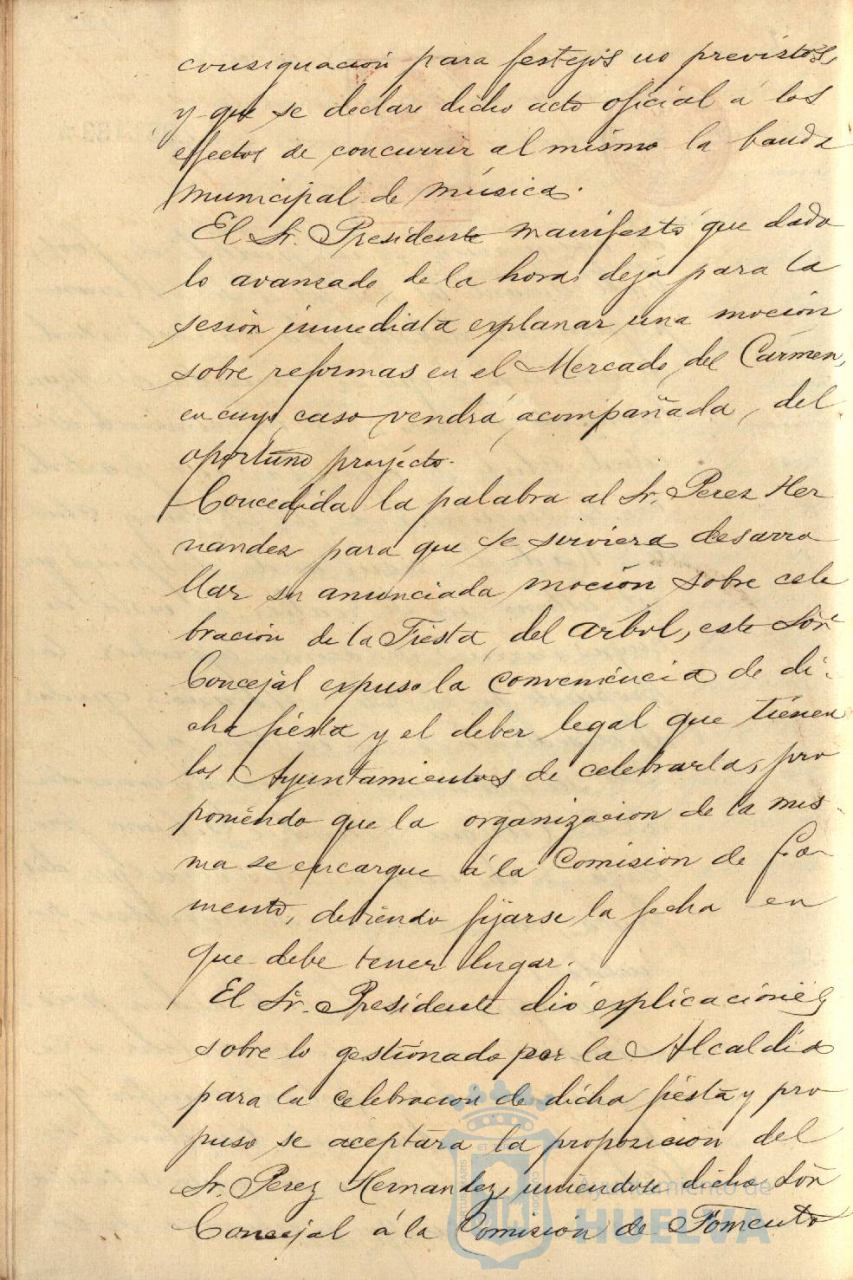 consignación para festejos no previstos,
y que se declare dicho acto oficial á los
efectos de concurrir al mismo la banda
municipal de música.
El Sr. Presidente manifestó que dado
lo avanzado de la hora deja para la
sesión inmediata explanar una moción
sobre reformas en el Mercado del Cármen,
en cuyo caso vendrá acompañada del
oportuno proyécto.
Concedida la palabra al Sr. Perez Her
nandez para que se sirviera desarro
llar su anunciada moción sobre cele
bración de la Fiesta del arbol, este Sõr
Concejal expuso la conveniencia de di-
cha fiésta y el deber legal que tiénen
los Ayuntamientos de celebrarla, pro
poniendo que la organizacion de la mis-
ma se encargue á la Comision de Fo-
mento, debiendo fijarse la fecha en
que debe tener lugar.
El Sr. Presidente dió explicaciónes
sobre lo gestionado por la Alcaldia
para la celebracion de dicha fiésta y pro
puso se aceptára la proposicion del
Sr. Perez Hernandez, uniendose dicho Sõr
Concejal á la Comision de Fomento
Ayuntamiento de
HUELVA